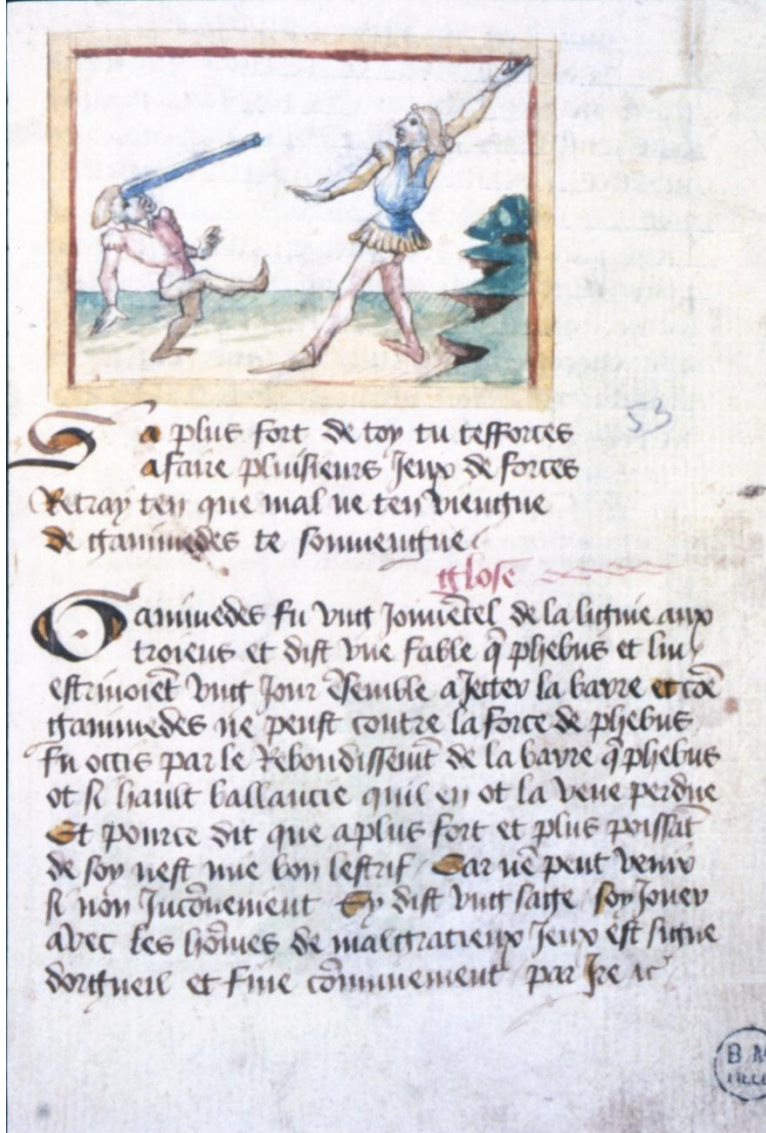 53
Sa plus fort de toy tu tefforces
a faire pluisieurs Jeux de forces
Retray ten que mal ne ten viengne
De ganimedes te souviengne
glose
Ganimedes fu vng Jouuēcel de la lignie aux
troiens et dist vne fable q̄ phebus et luy
estriuoiēt vng Jour ēsemble a Jecter la barre et cōe
ganimedes ne peust contre la force de phebus
fu occis par le Rebondissemt̄ de la barre q̄ phebus
ot si hault ballancie quil en ot la veue perdue
Et pource dit que a plus fort et plus poissāt
de soy nest mie bon lestrif / Car nē peut venir
si non Jncōuenient / Cy dist vng sage / soy Jouer
avec les hōmes de malgracieux Jeux est signe
dorgueil et fine cōmunement / par Jre ac
B M
LILLE